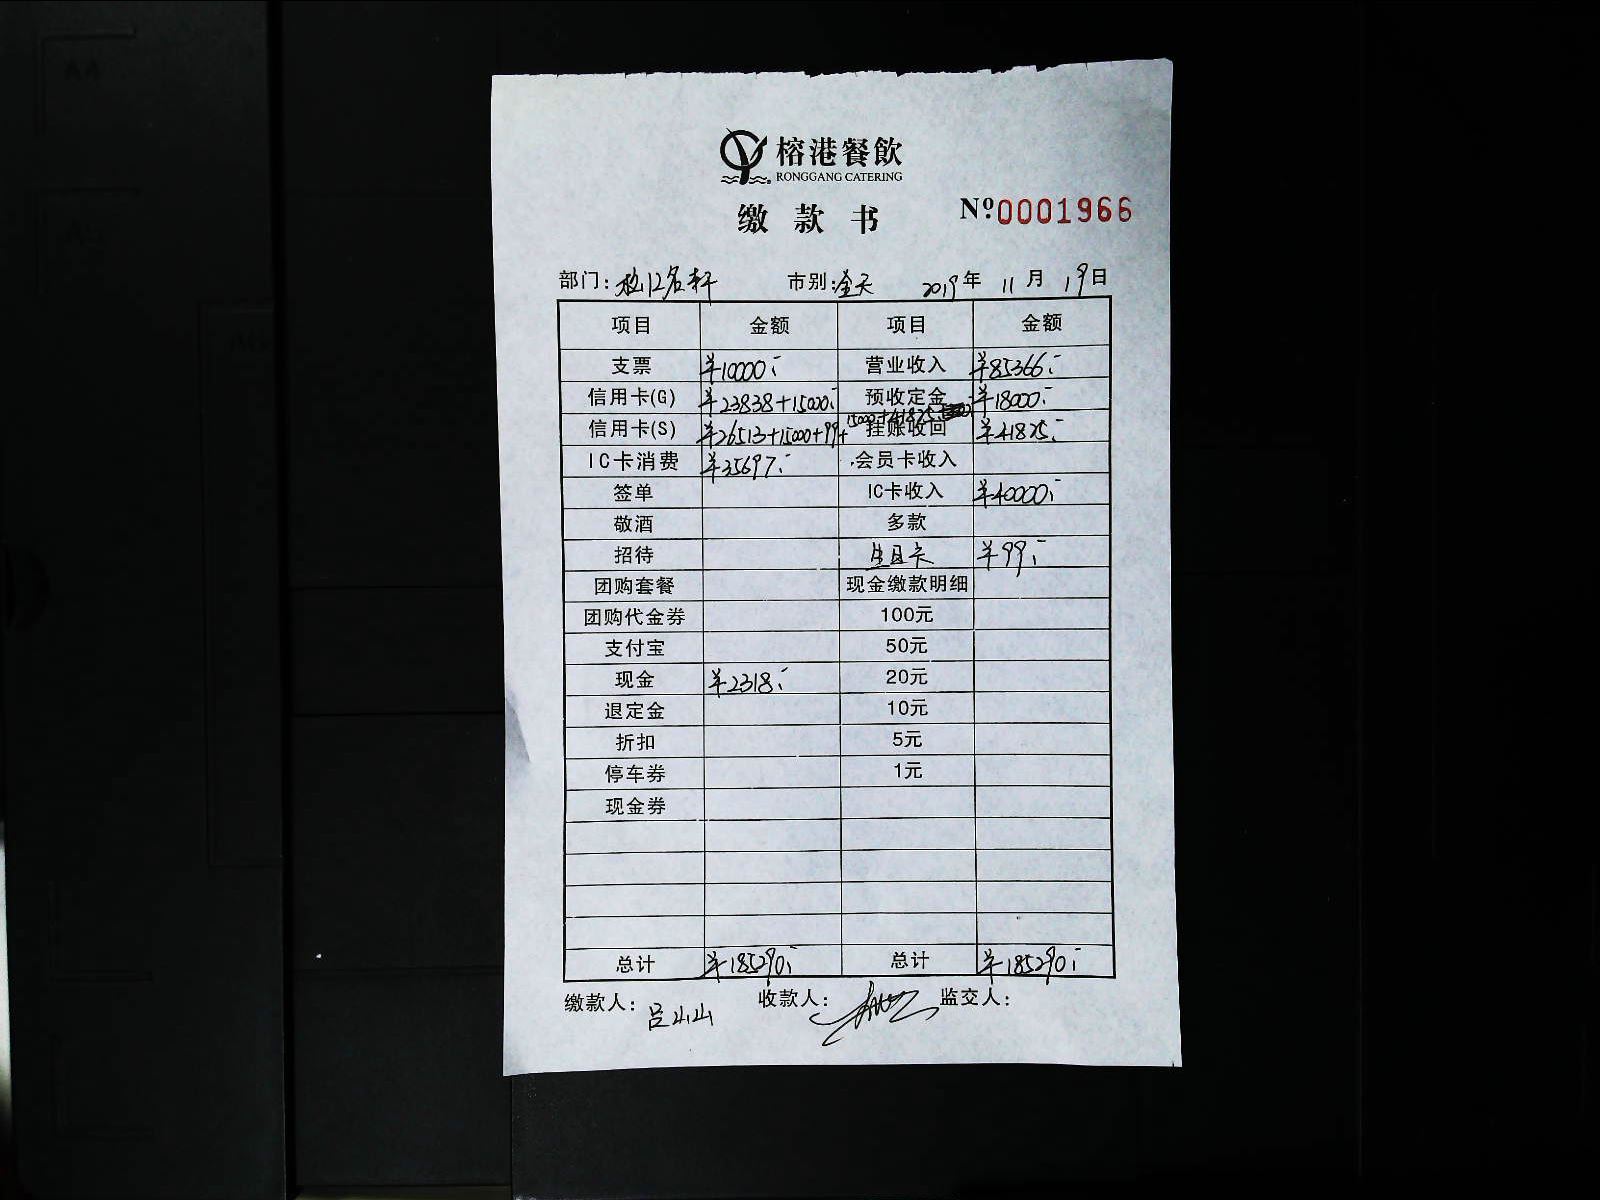 榕港餐飲
RONGGANG CATERING
缴款书
Nº0001966
部门: 名轩 市别:全天 2019年 11月 19日
项目 金额 项目 金额
支票 ¥10000.- 营业收入 ¥85366.-
信用卡(G) ¥23838+15000.- 预收定金 ¥18000.-
信用卡(S) ¥26513+15000+99+15000+41825 挂账收回 ¥41825.-
IC卡消费 ¥35697.- 会员卡收入
签单 IC卡收入 ¥40000.-
敬酒 多款
招待 生日卡 ¥99.-
团购套餐 现金缴款明细
团购代金券 100元
支付宝 50元
现金 ¥2318.- 20元
退定金 10元
折扣 5元
停车券 1元
现金券
总计 ¥185290.- 总计 ¥185290.-
缴款人: 吕山山 收款人: 监交人: